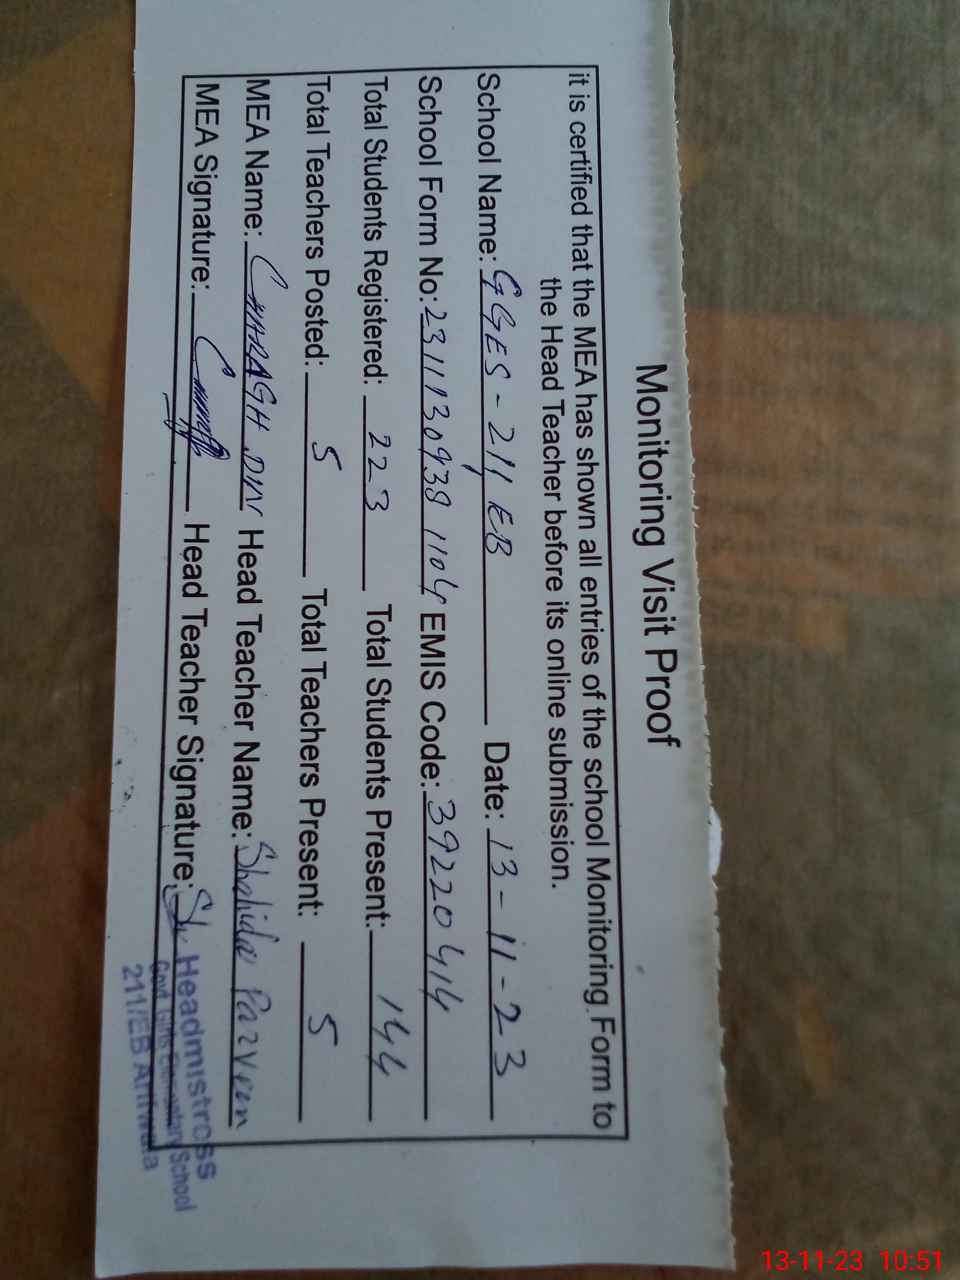 Monitoring Visit Proof
it is certified that the MEA has shown all entries of the school Monitoring Form to
the Head Teacher before its online submission.
School Name: GGES - 211 EB Date: 13-11-23
School Form No: 231113093S 1104 EMIS Code: 39220414
Total Students Registered: 223 Total Students Present: 144
Total Teachers Posted: 5 Total Teachers Present: 5
MEA Name: CHARAGH DIN Head Teacher Name: Shahida Parveen
MEA Signature: Head Teacher Signature:
Headmistress
Govt. Girls Elementary School
211/EB Arifwala
13-11-23 10:51